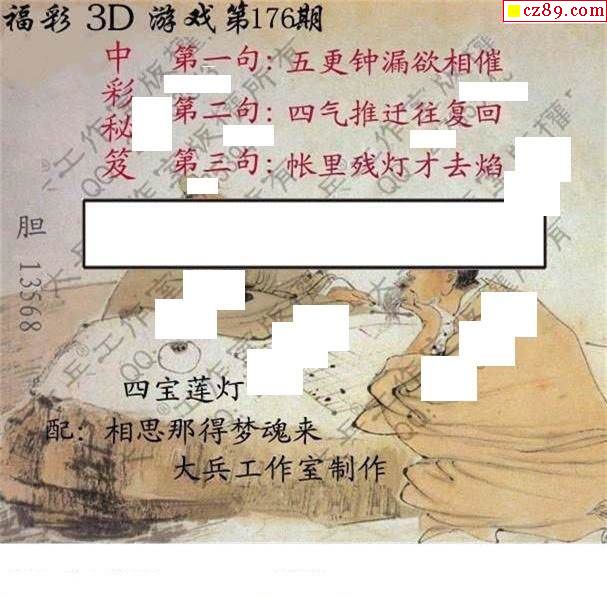 福彩 3D 游戏第176期
cz89.com
中彩秘笈
第一句: 五更钟漏欲相催
第二句: 四气推迁往复回
第三句: 帐里残灯才去焰
胆 13568
四宝莲灯
配: 相思那得梦魂来
大兵工作室制作